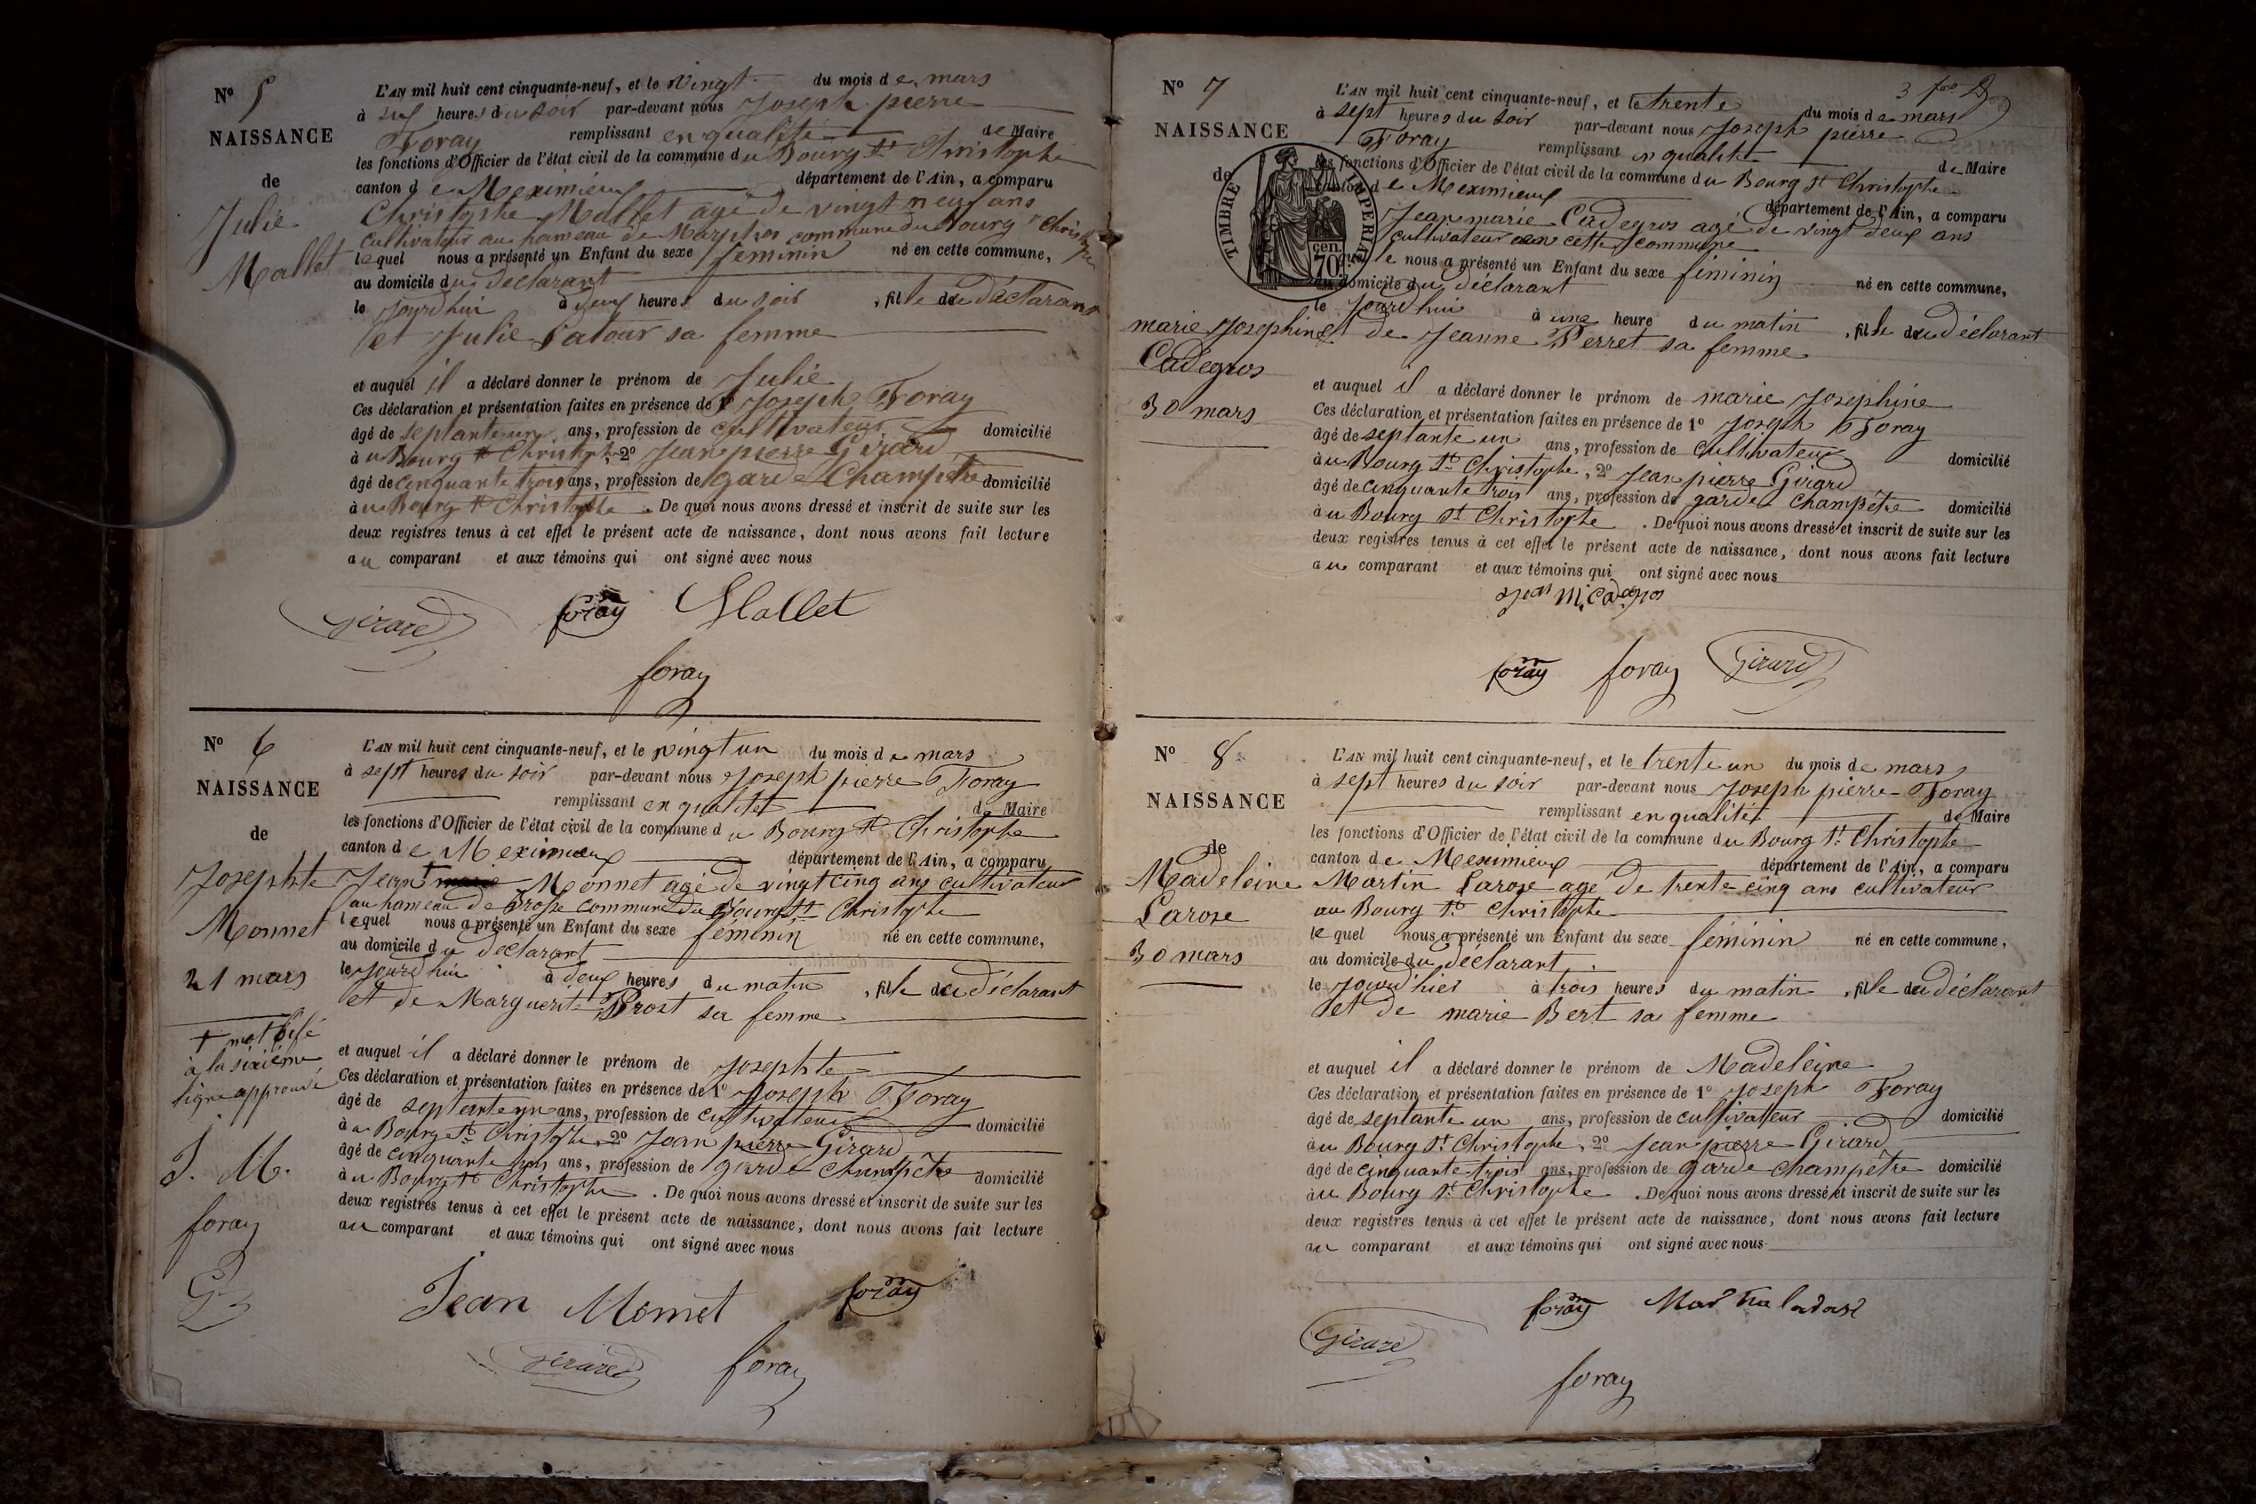 N° 5
NAISSANCE
de
Julie
Mallet
L'AN mil huit cent cinquante-neuf, et le vingt du mois de mars
à six heures du soir par-devant nous Joseph pierre
Foray remplissant en qualité de Maire
les fonctions d'Officier de l'état civil de la commune du Bourg St Christophe
canton de Meximieux département de l'Ain, a comparu
Christophe Mallet agé de vingt neuf ans
cultivateur au hameau de commune du Bourg St Christophe
lequel nous a présenté un Enfant du sexe feminin né en cette commune,
au domicile du déclarant
le jourd'hui à deux heures du soir, fille du déclarant
et Julie Latour sa femme
et auquel il a déclaré donner le prénom de Julie
Ces déclaration et présentation faites en présence de 1° Joseph Foray
âgé de septante un ans, profession de cultivateur domicilié
à u Bourg St Christophe, 2° Jean pierre Girard
âgé de cinquante trois ans, profession de garde Champêtre domicilié
à u Bourg St Christophe. De quoi nous avons dressé et inscrit de suite sur les
deux registres tenus à cet effet le présent acte de naissance, dont nous avons fait lecture
au comparant et aux témoins qui ont signé avec nous
Girard foray Mallet
foray
N° 6
NAISSANCE
de
Josephte
Monnet
21 mars
+ mot bifé
à la sixième
ligne approuvé
J. M.
foray
G
L'AN mil huit cent cinquante-neuf, et le vingt un du mois de mars
à sept heures du soir par-devant nous Joseph pierre Foray
remplissant en qualité de Maire
les fonctions d'Officier de l'état civil de la commune du Bourg St Christophe
canton de Meximieux département de l'Ain, a comparu
Jean Monnet agé de vingt cinq ans cultivateur
au hameau de Brosse commune du Bourg St Christophe
lequel nous a présenté un Enfant du sexe feminin né en cette commune,
au domicile du déclarant
le jourd'hui à deux heures du matin, fille du déclarant
et de Marguerite Prost sa femme
et auquel il a déclaré donner le prénom de Josephte
Ces déclaration et présentation faites en présence de 1° Joseph Foray
âgé de septante un ans, profession de cultivateur domicilié
à u Bourg St Christophe, 2° Jean pierre Girard
âgé de cinquante trois ans, profession de garde Champêtre domicilié
à u Bourg St Christophe. De quoi nous avons dressé et inscrit de suite sur les
deux registres tenus à cet effet le présent acte de naissance, dont nous avons fait lecture
au comparant et aux témoins qui ont signé avec nous
Jean Monnet foray
Girard foray
3
N° 7
NAISSANCE
de
TIMBRE IMPERIAL
70 cen.
marie Josephine
Cadegros
30 mars
L'AN mil huit cent cinquante-neuf, et le trente du mois de mars
à sept heures du soir par-devant nous Joseph pierre
Foray remplissant en qualité de Maire
les fonctions d'Officier de l'état civil de la commune du Bourg St Christophe
canton de Meximieux département de l'Ain, a comparu
Jean marie Cadegros agé de vingt deux ans
cultivateur en cette commune
lequel nous a présenté un Enfant du sexe féminin né en cette commune,
au domicile du déclarant
le jourd'hui à une heure du matin, fille du déclarant
et de Jeanne Perret sa femme
et auquel il a déclaré donner le prénom de marie Josephine
Ces déclaration et présentation faites en présence de 1° Joseph Foray
âgé de septante un ans, profession de cultivateur domicilié
à u Bourg St Christophe, 2° Jean pierre Girard
âgé de cinquante trois ans, profession de garde champêtre domicilié
à u Bourg St Christophe. De quoi nous avons dressé et inscrit de suite sur les
deux registres tenus à cet effet le présent acte de naissance, dont nous avons fait lecture
au comparant et aux témoins qui ont signé avec nous
Jean M. Cadegros
foray foray Girard
N° 8
NAISSANCE
de
Madeleine
Larose
30 mars
L'AN mil huit cent cinquante-neuf, et le trente un du mois de mars
à sept heures du soir par-devant nous Joseph pierre Foray
remplissant en qualité de Maire
les fonctions d'Officier de l'état civil de la commune du Bourg St Christophe
canton de Meximieux département de l'Ain, a comparu
Martin Larose agé de trente-cinq ans cultivateur
au Bourg St Christophe
lequel nous a présenté un Enfant du sexe féminin né en cette commune,
au domicile du déclarant
le jourd'hier à trois heures du matin, fille du déclarant
et de marie Bert sa femme
et auquel il a déclaré donner le prénom de Madeleine
Ces déclaration et présentation faites en présence de 1° Joseph Foray
âgé de septante un ans, profession de cultivateur domicilié
à u Bourg St Christophe, 2° Jean pierre Girard
âgé de cinquante-trois ans, profession de garde champêtre domicilié
à u Bourg St Christophe. De quoi nous avons dressé et inscrit de suite sur les
deux registres tenus à cet effet le présent acte de naissance, dont nous avons fait lecture
au comparant et aux témoins qui ont signé avec nous
foray
Girard
foray